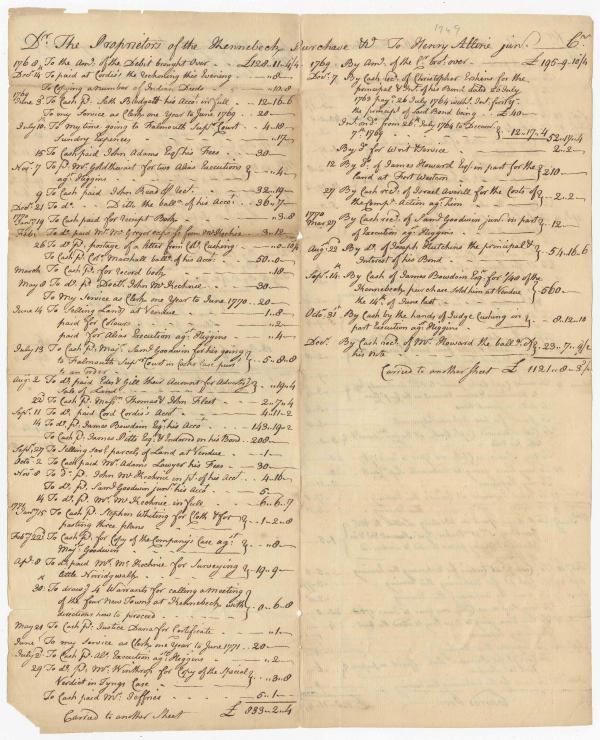 1769
Dr. The Proprietors of the Kennebeck Purchase &c To Henry Alline junr. Cr.
1768 To the Amt. of the Debit brought Over £128..11..4/4
Decr. 14 To paid at Cordis's the reckoning this Evening ..8
To Copying a number of Indian Deeds ..10..8
1769
June 3 To Cash pd. Seth Blodgett his Acco. in full 12..16..6
To my Service as Clerk one Year to June 1769 20
July 10 To my time going to Falmouth Supr. Court 4..10
Sundry Expences ..17
15 To Cash paid John Adams Esqr. his Fees 30
Nov. 7 To pd. Mr. Goldthwait for two Alias Executions
agt. Higgins ..4
9 To Cash paid John Read pr. rect. 32..19
Decr. 21 To do. Ditto the balla. of his Acco. 36..7
To Cash paid for receipt Book ..3..8
3..12
26 To do. pd. postage of a letter from Col. Cushing 0..0..10/4
To Cash pd. Col. Marshall balla. of his Acco. 50..0
March To Cash pd. for record book ..18
May 8 To do. pd. Doctr. John McKechnie 30
To My Service as Clerk one Year to June 1770 20
June 14 To Selling Land at Vendue 1..8
paid for Colours ..2
paid for Alias Execution agt. Higgins ..4
July 13 To Cash pd. Majr. Saml. Goodwin for his going
to Falmouth Supr. Court in Cash last purst.
to an order 5..8..8
Augt. 2 To do. paid Edes & Gill their Account for Advertg.
Sale of Land ..19..4
22 To Cash pd. Messrs. Thomas & John Fleet 2..7..4
Sepr. 11 To do. paid Cord Cordis's Acco. 4..11..2
14 To do. pd. James Bowdoin Esqr. his Acco. 143..19..2
To Cash pd. James Pitts Esqr. & Indorsed on his Bond 208
Sepr. 27 To Selling sevl. parcels of Land at Vendue 1
Octr. 2 To Cash paid Mr. Adams Lawyer his Fees 30
Novr. 8 To do. pd. John McKechnie in pt. of his Acco. 4..16
To do. pd. Saml. Goodwin junr. his Acco. 5
14 To do. pd. Mr. McKechnie in full 6..6..7
1771
Janry. 15 To Cash pd. Stephen Whiting for Cloth & for
pasting three plans 1..2..8
Feby. 22 To Cash pd. for Copy of the Company's Case agt.
Majr. Goodwin ..8
Apl. 8 To do. paid Mr. McKechnie for Surveying
little Norridgwalk 19..9
30 To drawg. 4 Warrants for calling a meeting
of the four new Towns at Kennebeck with
directions how to proceed 0..6..8
May 21 To Cash pd. Justice Dana for Certificate ..1
June To my Service as Clerk one Year to June 1771 20
July 2 To Cash pd. Als. Execution agt. Higgins ..2
29 To do. pd. Mr. Winthrop for Copy of the Special
Verdict in Tyngs Case ..3..8
To Cash paid Mr. Jeffries 5..1
Carried to another Sheet £ 833..2..4
1769 By Amt. of the Cr. bro't over £195..9..10/4
Decr. 7 By Cash recd. of Christopher Erskins for the
principal & Int. of his Bond dated 26 July
1763 paya. 26 July 1764 with Int. for
the principal of said Bond being £40
Int. on do. from 26th July 1764 to Decemr.
7th. 1769 12..17..4 52..17..4
By do. for Writ & Service 2..2
12 By do. of James Howard Esqr. in part for the
land at Fort Western 210
27 By Cash recd. of Israel Averill for the Costs of
the Compa. Action agt. him 2..2
1770
Mar. 27 By Cash recd. of Saml. Goodwin junr. in part
of Execution agt. Higgins 12
Aug. 23 By do. of Joseph Hutchins the principal &
Interest of his Bond 54..16..6
Sepr. 14 By Cash of James Bowdoin Esqr. for 1/40 of the
Kennebeck purchase sold him at Vendue
the 14th of June last 560
Octo. 31st By Cash by the hands of Judge Cushing in
part Execution agt. Higgins 8..12..10
Decr. By Cash recd. of Mr. Howard the balla. of
his Note 23..7..9/2
Carried to another Sheet £ 1121..8..3/4